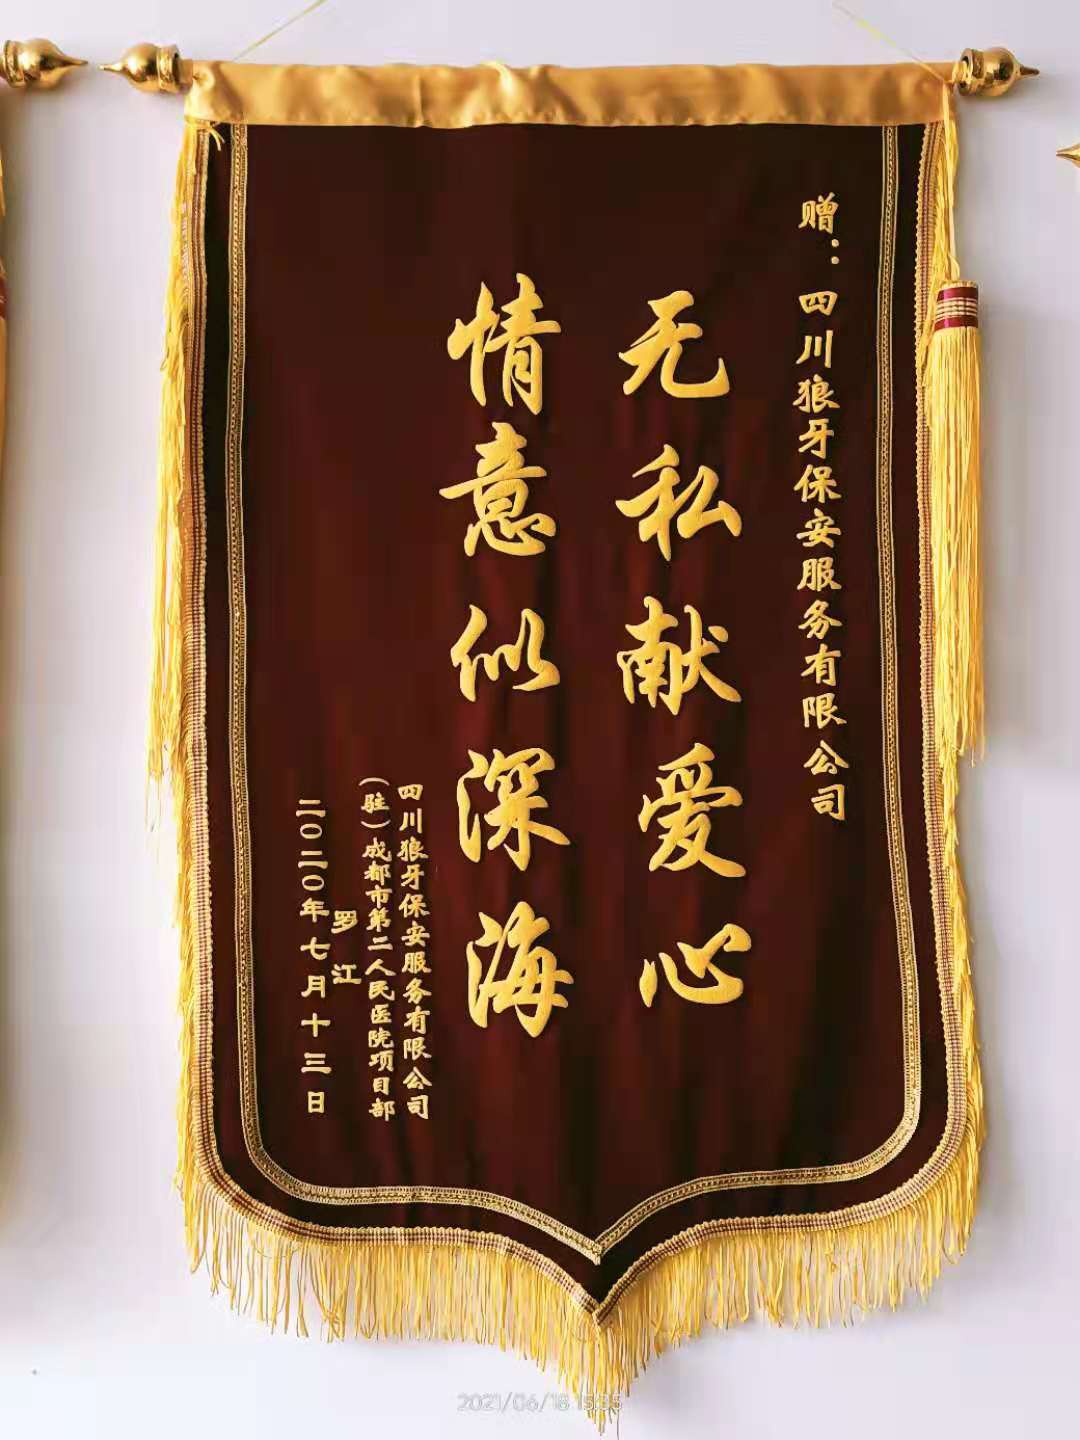 赠：四川狼牙保安服务有限公司
无私献爱心
情意似深海
四川狼牙保安服务有限公司
（驻）成都市第二人民医院项目部
罗江
二〇二〇年七月十三日
2021/06/18 15:35